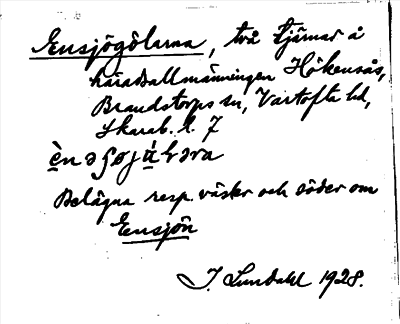 Ensjögölarna, två tjärnar å
häradsallmänningen Hökensås,
Brandstorps sn, Vartofta hd,
Skarab. l. 7
Belägna resp. väster och söder om
Ensjön
J. Lundahl 1928.